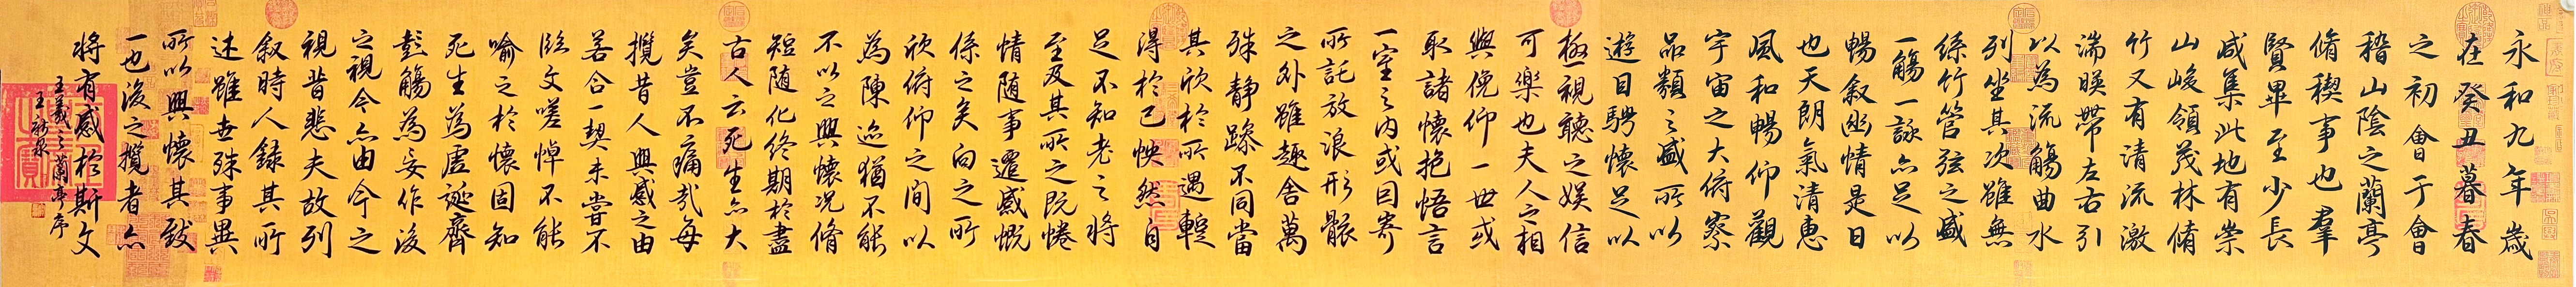 永和九年歲
在癸丑暮春
之初會于會
稽山陰之蘭亭
脩稧事也羣
賢畢至少長
咸集此地有崇
山峻領茂林脩
竹又有清流激
湍暎帶左右引
以為流觴曲水
列坐其次雖無
絲竹管弦之盛
一觴一詠亦足以
暢敘幽情是日
也天朗氣清惠
風和暢仰觀
宇宙之大俯察
品類之盛所以
遊目騁懷足以
極視聽之娛信
可樂也夫人之相
與俛仰一世或
取諸懷抱悟言
一室之內或因寄
所託放浪形骸
之外雖趣舍萬
殊靜躁不同當
其欣於所遇蹔
得於己怏然自
足不知老之將
至及其所之既惓
情隨事遷感慨
係之矣向之所
欣俯仰之間以
為陳迹猶不能
不以之興懷況脩
短隨化終期於盡
古人云死生亦大
矣豈不痛哉每
攬昔人興感之由
若合一契未嘗不
臨文嗟悼不能
喻之於懷固知
死生為虛誕齊
彭觴為妄作後
之視今亦由今之
視昔悲夫故列
敘時人錄其所
述雖世殊事異
所以興懷其致
一也後之攬者亦
將有感於斯文
王羲之蘭亭序
王新泉